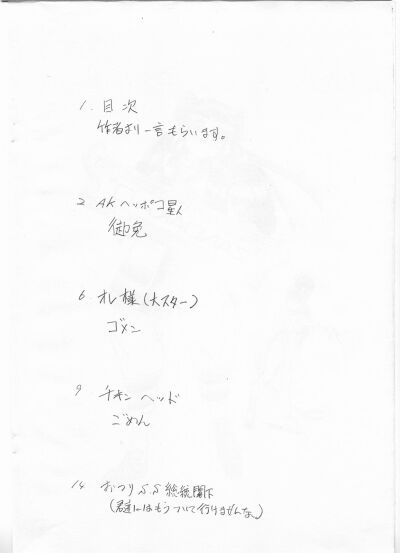 1. 目次
作者より一言もらいます。
2 AKヘッポコ星人
御免
6. オレ様(大スター)
ゴメン
9 チキンヘッド
ごめん
14. おつりS.S総統閣下
(君達にはもうついて行けませんなぁ)